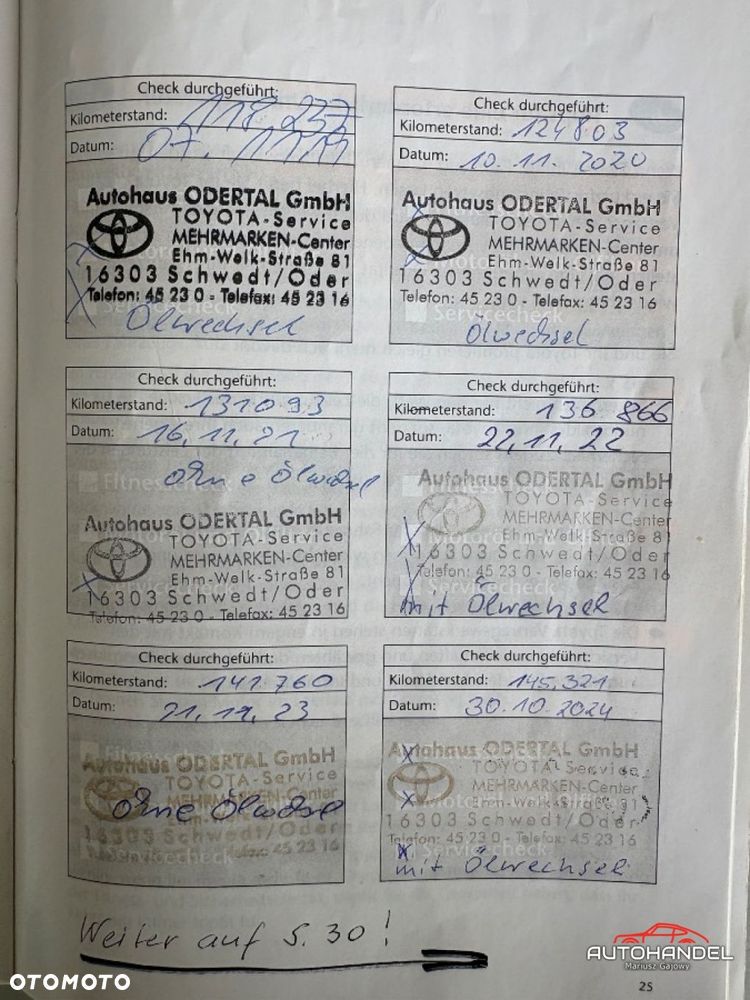 Check durchgeführt:
Kilometerstand: 118.237
Datum: 07.11.19
Autohaus ODERTAL GmbH
TOYOTA-Service
MEHRMARKEN-Center
Ehm-Welk-Straße 81
16303 Schwedt/Oder
Telefon: 45 23 0 - Telefax: 45 23 16
Ölwechsel
Check durchgeführt:
Kilometerstand: 124803
Datum: 10.11.2020
Autohaus ODERTAL GmbH
TOYOTA-Service
MEHRMARKEN-Center
Ehm-Welk-Straße 81
16303 Schwedt/Oder
Telefon: 45 23 0 - Telefax: 45 23 16
Servicecheck
Ölwechsel
Check durchgeführt:
Kilometerstand: 131093
Datum: 16.11.21
ohne Ölwechsel
Fitnesscheck
Autohaus ODERTAL GmbH
TOYOTA-Service
MEHRMARKEN-Center
Ehm-Welk-Straße 81
16303 Schwedt/Oder
Telefon: 45 23 0 - Telefax: 45 23 16
Check durchgeführt:
Kilometerstand: 136 866
Datum: 22.11.22
Autohaus ODERTAL GmbH
TOYOTA-Service
MEHRMARKEN-Center
Ehm-Welk-Straße 81
16303 Schwedt/Oder
Telefon: 45 23 0 - Telefax: 45 23 16
mit Ölwechsel
Check durchgeführt:
Kilometerstand: 141.760
Datum: 21.11.23
Fitnesscheck
Autohaus ODERTAL GmbH
TOYOTA-Service
MEHRMARKEN-Center
ohne Ölwechsel
Ehm-Welk-Straße 81
16303 Schwedt/Oder
Telefon: 45 23 0 - Telefax: 45 23 16
Servicecheck
Check durchgeführt:
Kilometerstand: 145.321
Datum: 30.10.2024
Autohaus ODERTAL GmbH
TOYOTA-Service
MEHRMARKEN-Center
Ehm-Welk-Straße 81
16303 Schwedt/Oder
Telefon: 45 23 0 - Telefax: 45 23 16
Servicecheck
mit Ölwechsel
Weiter auf S. 30!
AUTOHANDEL
Mariusz Gajowy
OTOMOTO
25